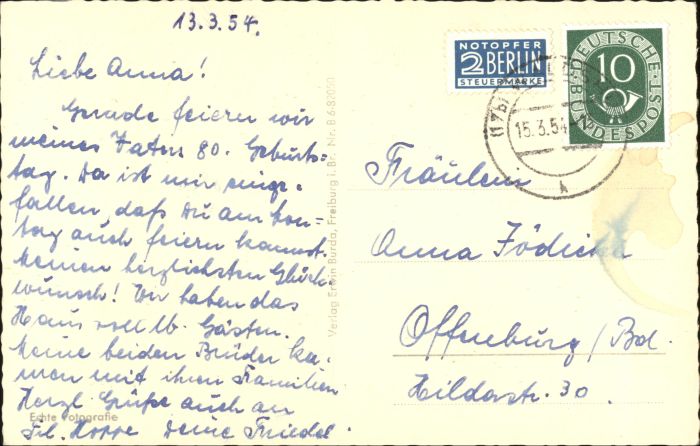 13.3.54.
Liebe Anna!
Gerade feiern wir
meines Vaters 80. Geburts-
tag. Da ist mir einge-
fallen, daß Du am Son-
tag auch feiern kannst.
Meinen herzlichsten Glück-
wunsch! Wir haben das
Haus voll lb. Gästen.
Meine beiden Brüder ka-
men mit ihren Familien
Herzl. Grüße auch an
Frl. Hoppe Deine Friedel.
Echte Fotografie
Verlag Erwin Burda, Freiburg i. Br. Nr. B 6-82050
NOTOPFER
2 BERLIN
STEUERMARKE
DEUTSCHE
10
BUNDESPOST
15.3.54
A
Fräulein
Anna Jödicke
Offenburg/Bd.
Hildastr. 30.